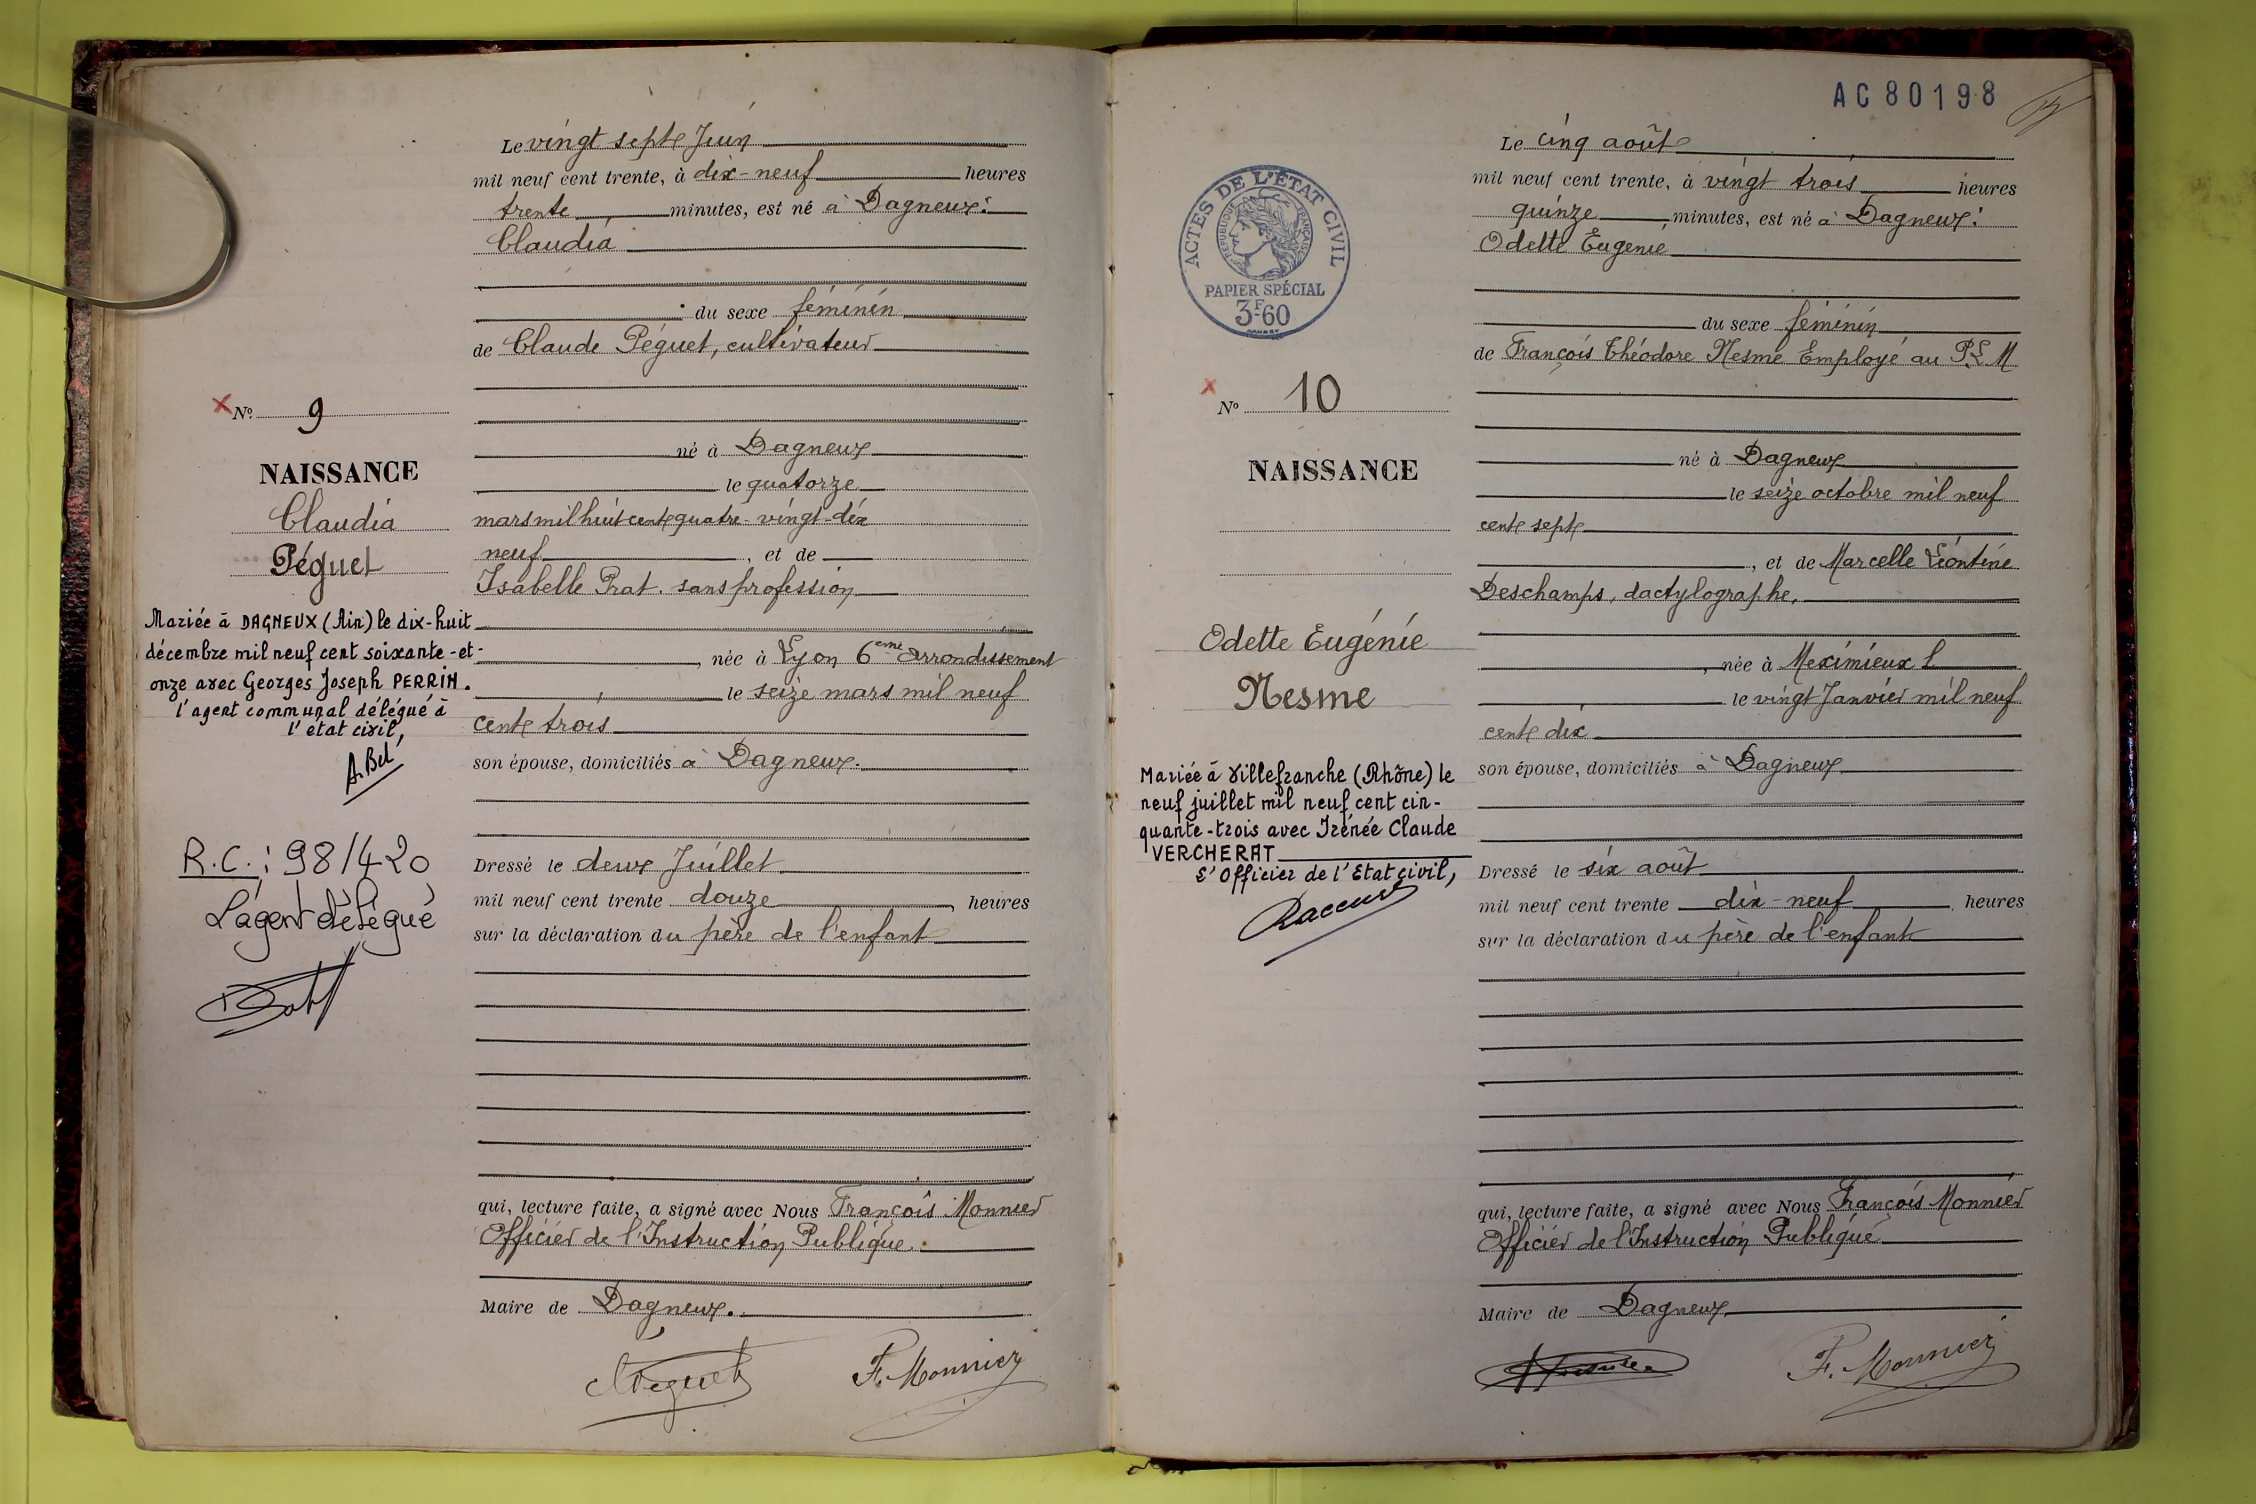 Le vingt sept Juin
mil neuf cent trente, à dix-neuf heures
trente minutes, est né à Dagneux:
Claudia
du sexe féminin
de Claude Péguet, cultivateur
né à Dagneux
le quatorze
mars mil huit cent quatre-vingt-dix
neuf, et de
Isabelle Prat. sans profession
née à Lyon 6eme arrondissement
le seize mars mil neuf
cent trois
son épouse, domiciliés à Dagneux.
Dressé le deux Juillet
mil neuf cent trente douze, heures
sur la déclaration du père de l'enfant
qui, lecture faite, a signé avec Nous François Monnier
Officier de l'Instruction Publique.
Maire de Dagneux.
Péguet
F. Monnier
No. 9
NAISSANCE
Claudia
Péguet
Mariée à DAGNEUX (Ain) le dix-huit
décembre mil neuf cent soixante-et-
onze avec Georges Joseph PERRIN.
l'agent communal délégué à
l'état civil,
A. Bel
R.C.: 98/420
L'agent délégué
AC 80198
ACTES DE L'ÉTAT CIVIL
RÉPUBLIQUE FRANÇAISE
PAPIER SPÉCIAL
3F60
No 10
NAISSANCE
Odette Eugénie
Nesme
Mariée à Villefranche (Rhône) le
neuf juillet mil neuf cent cin-
quante-trois avec Irénée Claude
VERCHERAT
L'Officier de l'Etat civil,
Le cinq août
mil neuf cent trente, à vingt trois heures
quinze minutes, est né à Dagneux:
Odette Eugenie
du sexe féminin
de François Théodore Nesme Employé au P.L.M
né à Dagneux
le seize octobre mil neuf
cent sept
, et de Marcelle Léontine
Deschamps, dactylographe,
, née à Meximieux
le vingt Janvier mil neuf
cent dix
son épouse, domiciliés à Dagneux
Dressé le six août
mil neuf cent trente dix-neuf heures
sur la déclaration du père de l'enfant
qui, lecture faite, a signé avec Nous François Monnier
Officier de l'Instruction Publique
Maire de Dagneux
F. Monnier